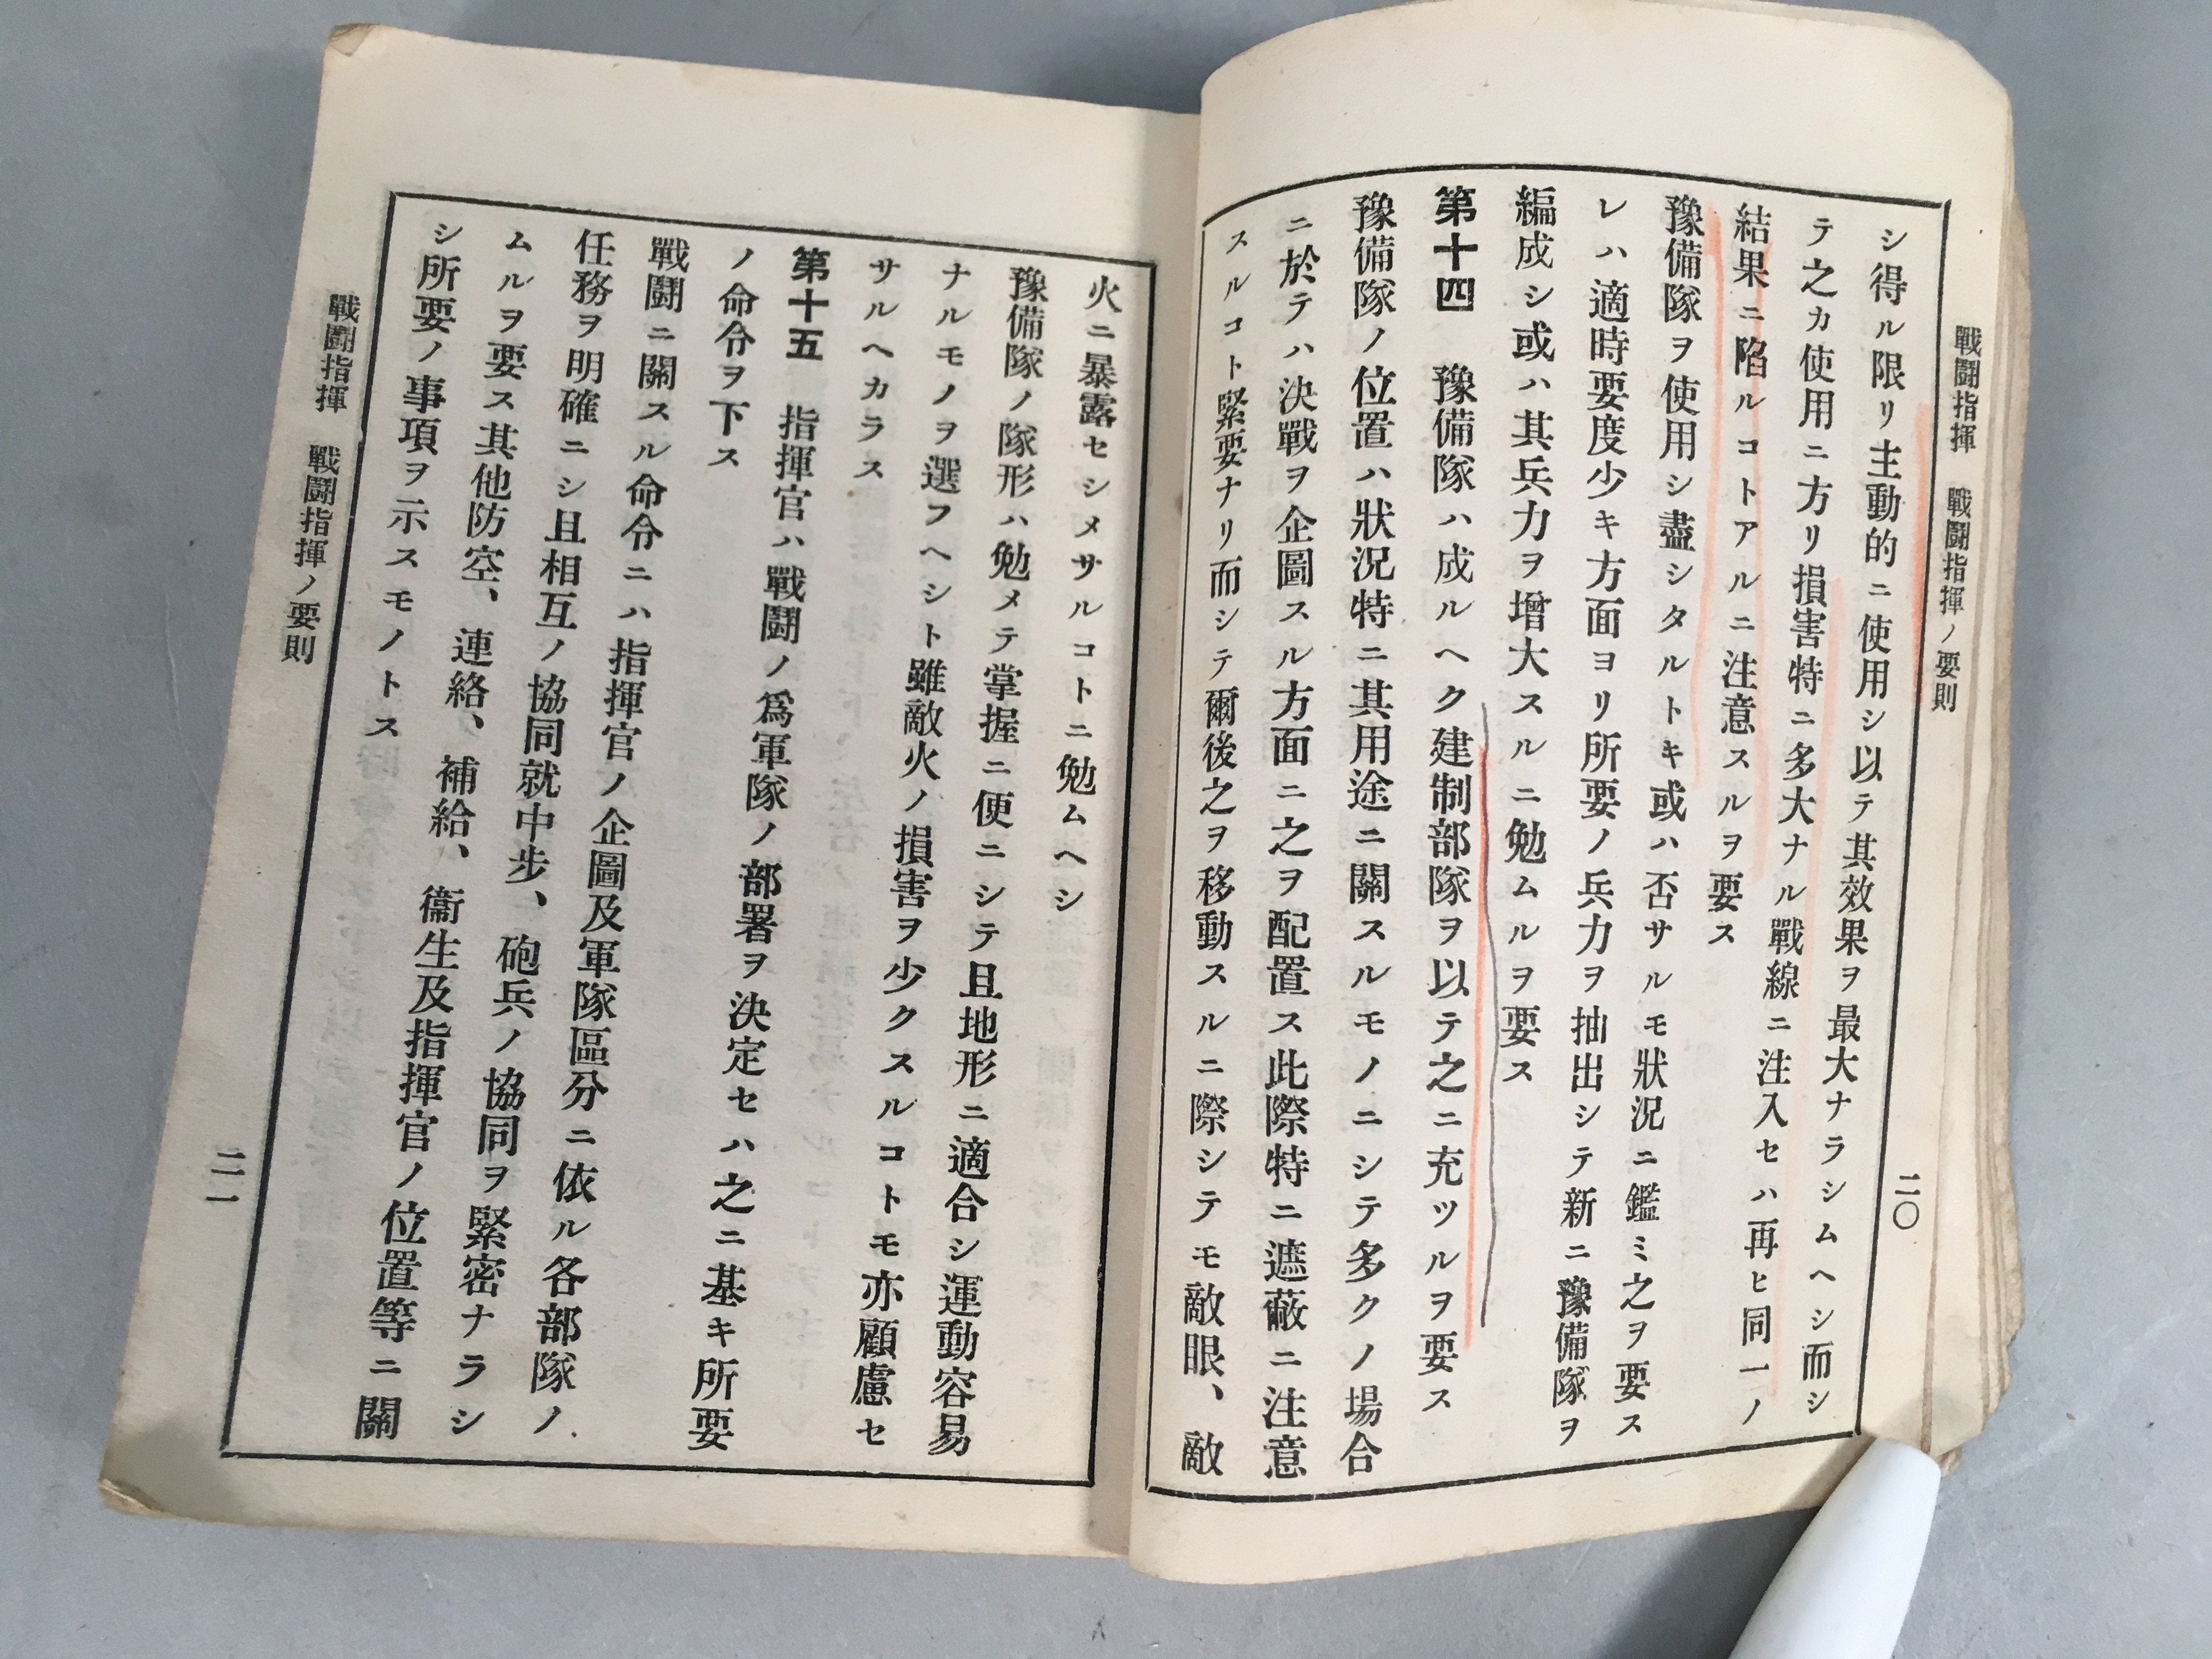 戰鬪指揮　戰鬪指揮ノ要則
二〇
シ得ル限リ主動的ニ使用シ以テ其效果ヲ最大ナラシムヘシ而シ
テ之カ使用ニ方リ損害特ニ多大ナル戰線ニ注入セハ再ヒ同一ノ
結果ニ陷ルコトアルニ注意スルヲ要ス
豫備隊ヲ使用シ盡シタルトキ或ハ否サルモ狀況ニ鑑ミ之ヲ要ス
レハ適時要度少キ方面ヨリ所要ノ兵力ヲ抽出シテ新ニ豫備隊ヲ
編成シ或ハ其兵力ヲ增大スルニ勉ムルヲ要ス
第十四　豫備隊ハ成ルヘク建制部隊ヲ以テ之ニ充ツルヲ要ス
豫備隊ノ位置ハ狀況特ニ其用途ニ關スルモノニシテ多クノ場合
ニ於テハ決戰ヲ企圖スル方面ニ之ヲ配置ス此際特ニ遮蔽ニ注意
スルコト緊要ナリ而シテ爾後之ヲ移動スルニ際シテモ敵眼、敵
火ニ暴露セシメサルコトニ勉ムヘシ
豫備隊ノ隊形ハ勉メテ掌握ニ便ニシテ且地形ニ適合シ運動容易
ナルモノヲ選フヘシト雖敵火ノ損害ヲ少クスルコトモ亦顧慮セ
サルヘカラス
第十五　指揮官ハ戰鬪ノ爲軍隊ノ部署ヲ決定セハ之ニ基キ所要
ノ命令ヲ下ス
戰鬪ニ關スル命令ニハ指揮官ノ企圖及軍隊區分ニ依ル各部隊ノ
任務ヲ明確ニシ且相互ノ協同就中步、砲兵ノ協同ヲ緊密ナラシ
ムルヲ要ス其他防空、連絡、補給、衞生及指揮官ノ位置等ニ關
シ所要ノ事項ヲ示スモノトス
戰鬪指揮　戰鬪指揮ノ要則
二一